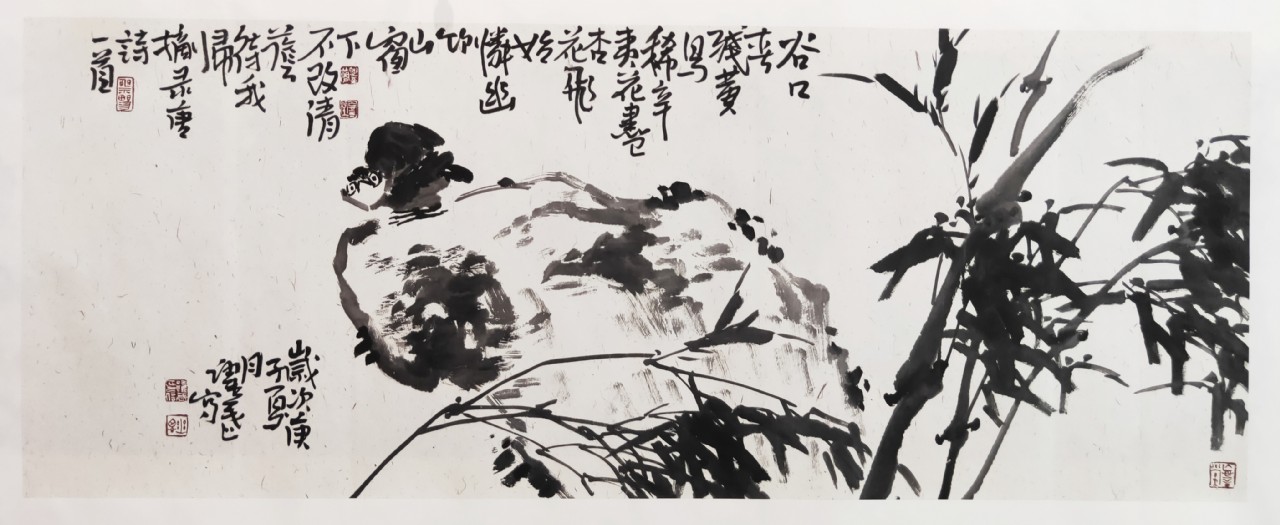 谷口
春
殘黄
鸟
稀辛
夷花盡
杏
花飛
始
憐幽
竹
山
窗
下
不改清
蔭
待我
歸
摘录唐
詩
一首
歲次庚
子夏
月
写